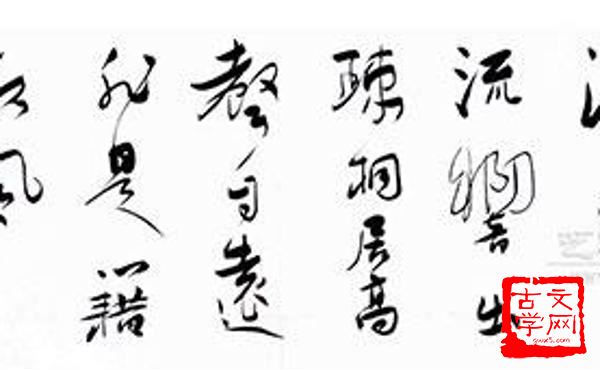 流響出
疎桐居高
聲自遠
非是藉
風
古文
学网